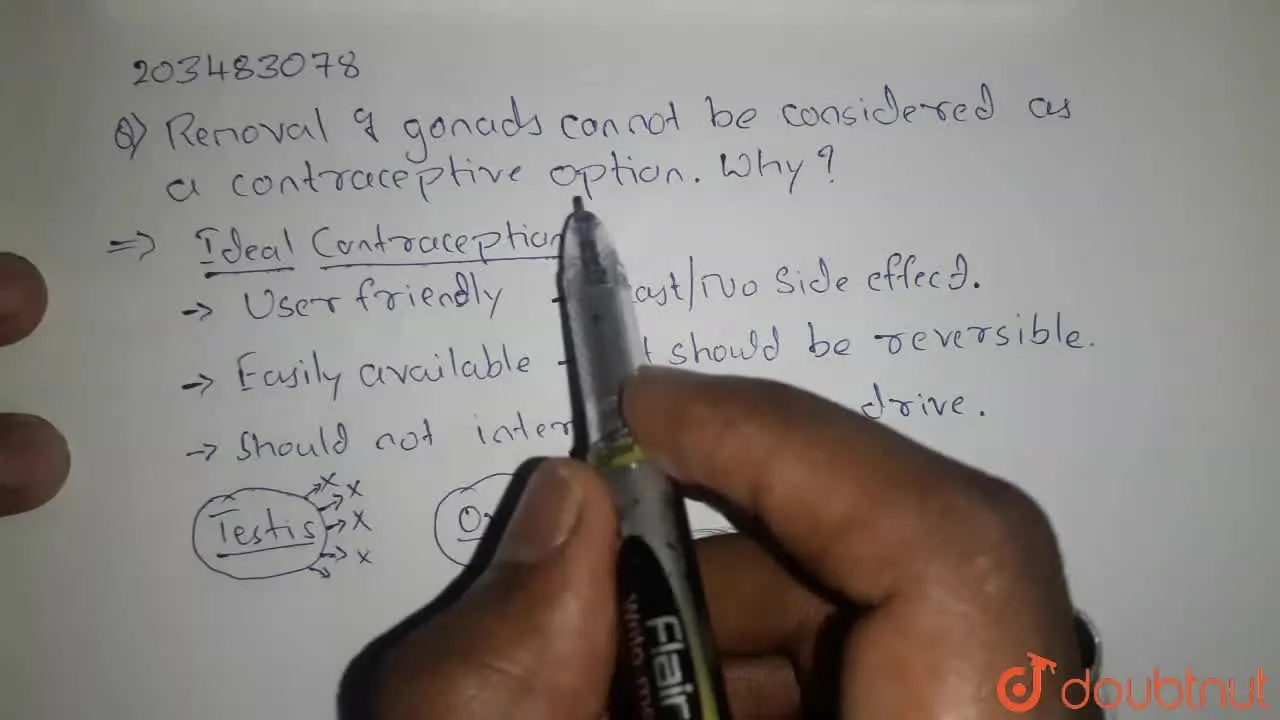 203483078
Q) Removal of gonads cannot be considered as
a contraceptive option. Why?
=> Ideal Contraception
-> User friendly - ast/No side effect.
-> Easily available - t should be reversible.
-> Should not inter drive.
Testis x x x x
Flair
doubtnut